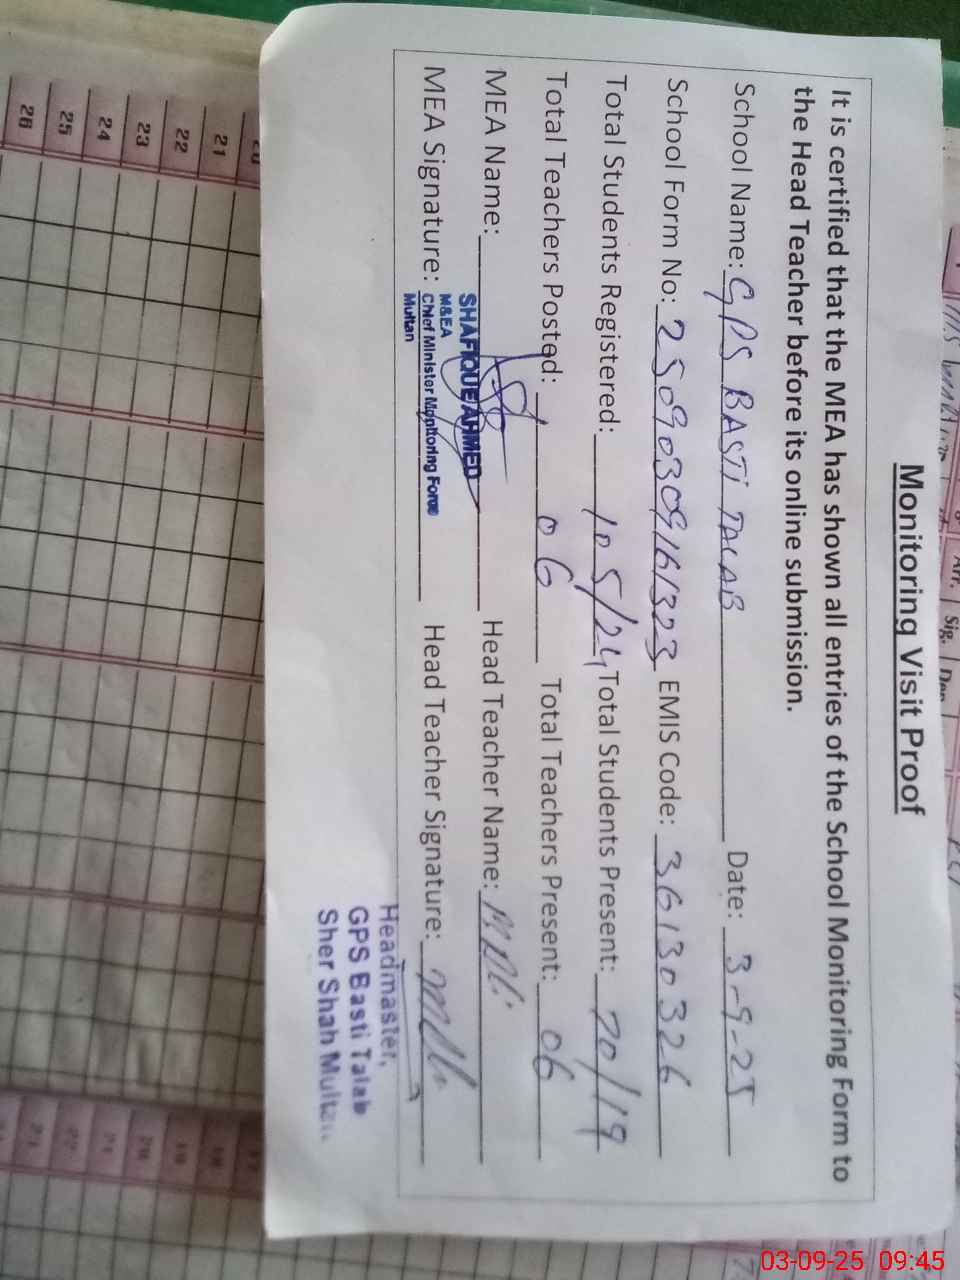 Monitoring Visit Proof
It is certified that the MEA has shown all entries of the School Monitoring Form to
the Head Teacher before its online submission.
School Name: GPS BASTI TALAB Date: 3-9-25
School Form No: 25090309161323 EMIS Code: 36130326
Total Students Registered: 105/24 Total Students Present: 70/19
Total Teachers Posted: 06 Total Teachers Present: 06
MEA Name: SHAFIQUE AHMED Head Teacher Name:
M&EA
MEA Signature: Chief Minister Monitoring Force Head Teacher Signature:
Multan
Headmaster,
GPS Basti Talab
Sher Shah Multan.
Arr. Sig. Dep
21
22
23
24
25
26
03-09-25 09:45